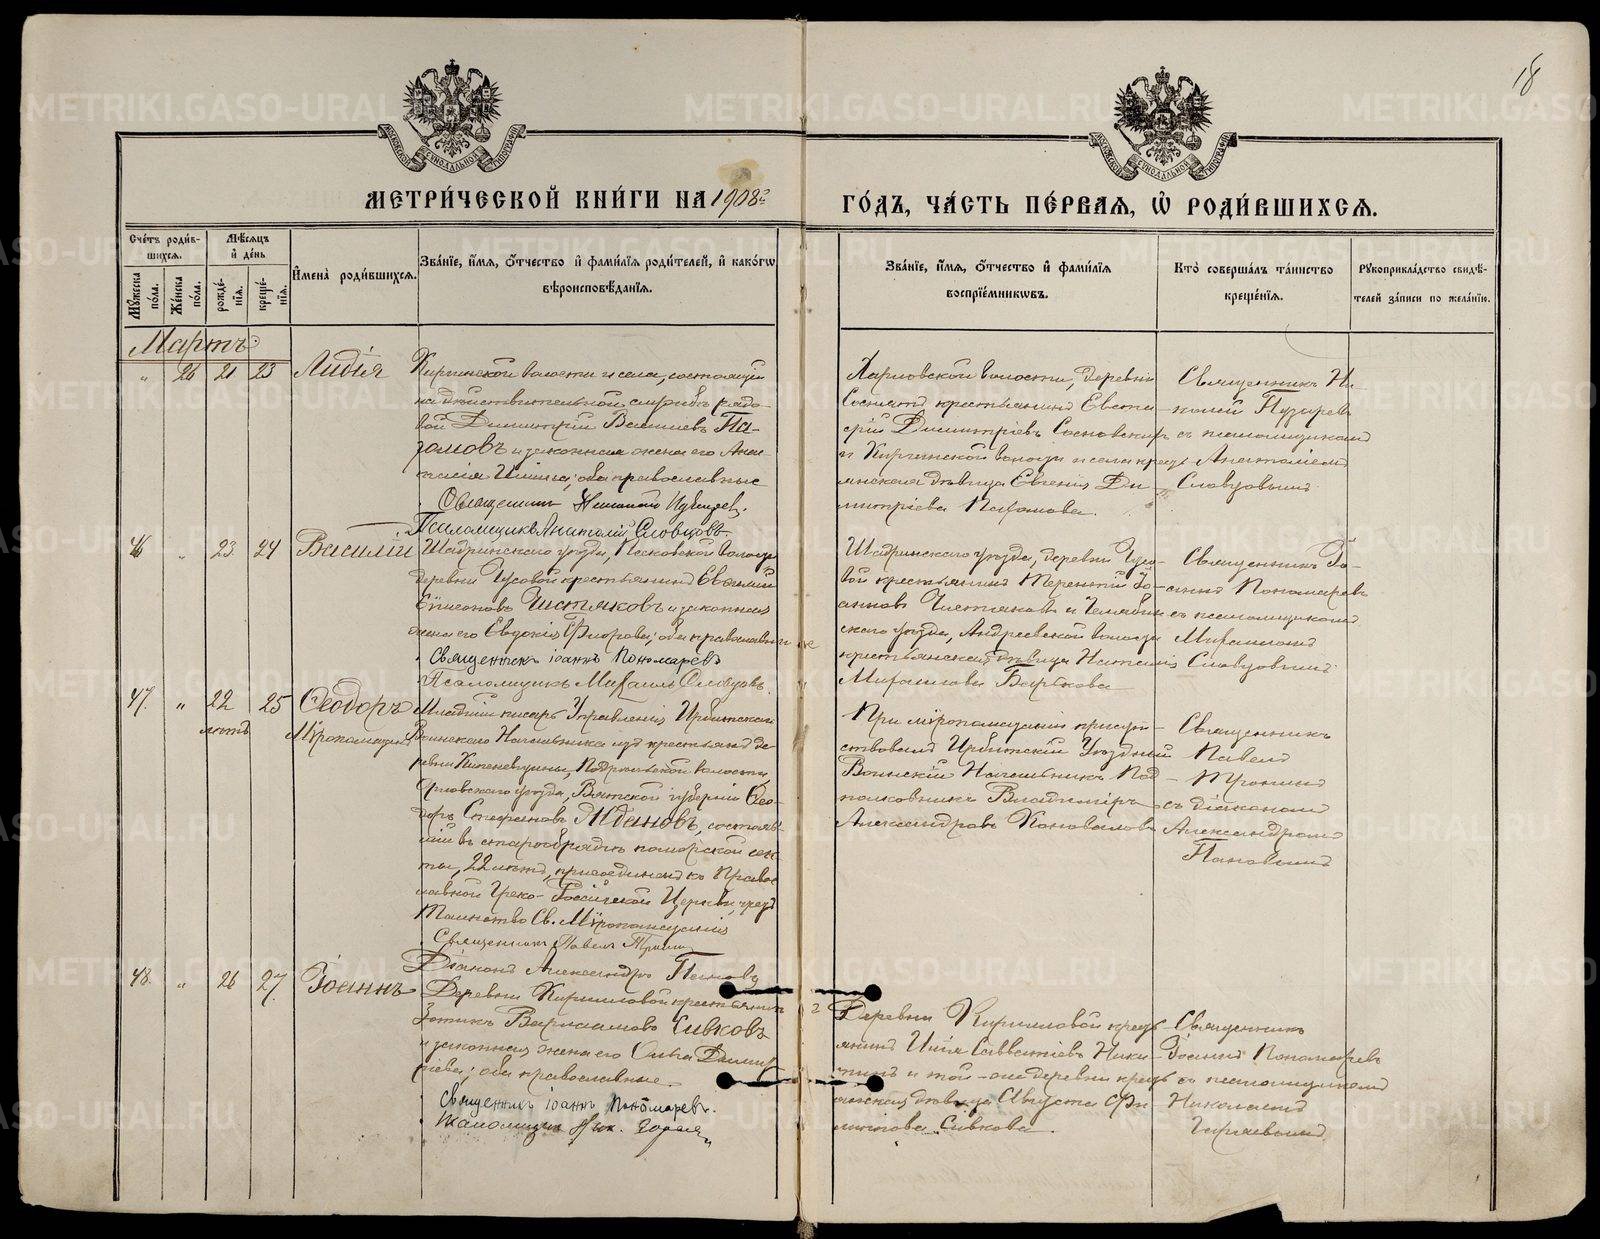 18
МЕТРИ́ЧЕСКОЙ КНИ́ГИ НА 1908й
ГО́ДЪ, ЧА́СТЬ ПЕ́РВАЯ, Ѽ РОДИ́ВШИХСЯ.
Сче́тъ роди́в-
шихся.
Мѣ́сяцъ
и де́нь
Мꙋжеска по́ла.
Же́нска по́ла.
рожде́-
нїя.
креще́-
нїя.
И҆мена̀ роди́вшихся.
Зва́нїе, и҆́мя, ѻ҆́тчество и҆ фами́лїя роди́телей, и҆ како́гѡ
вѣроисповѣ́данїя.
Зва́нїе, и҆́мя, ѻ҆́тчество и҆ фами́лїя
воспрїе́мниковъ.
Кто̀ соверша́лъ та́инство
креще́нїя.
Рꙋкоприкла́дство свидѣ́-
телей за́писи по жела́нїю.
Мартъ
" 26 21 23 Лидія
Киргинской волости и села, состоящій
на дѣйствительной службѣ рядо-
вой Димитрій Па-
и законная жена его Анас-
тасія оба православные
Священникъ
Псаломщикъ Анатолій Словцовъ.
Харловской волости, деревни
крестьянинъ Евста-
фій Димитріевъ Сосновскихъ
и Киргинской волости и села кресть-
янская дѣвица Евгенія Ди-
митріева
Священникъ Ни-
колай Пузыревъ
съ псаломщикомъ
Анатоліемъ
Словцовымъ
46 " 23 24 Василій
Шадринскаго уѣзда, Песковской волости
деревни Чусовой крестьянинъ Евѳимій
Симеоновъ Чистяковъ и законная
жена его Евдокія Флорова; оба православные
Священникъ Іоаннъ Пономаревъ
Псаломщикъ Михаилъ Словцовъ.
Шадринскаго уѣзда, деревни Чусо-
вой крестьянинъ Терентій Іо-
анновъ Чистяковъ и Челябин-
скаго уѣзда, Андреевской волости
крестьянская дѣвица Наталія
Михаилова
Священникъ Іо-
аннъ Пономаревъ
съ псаломщикомъ
Михаиломъ
Словцовымъ
47. " 22 25 Ѳеодоръ
лѣтъ Мѵропомазанъ
Младшій писарь Управленія Ирбитскаго
Воинскаго Начальника изъ крестьянъ де-
ревни волости,
Орловскаго уѣзда, Вятской губерніи Ѳео-
доръ Стефановъ Ждановъ, состояв-
шій въ старообрядч. поморской сек-
ты, 22 лѣтъ, присоединенъ къ Право-
славной Греко-Россійской Церкви чрезъ
Таинство Св. Мѵропомазанія
Священникъ Павелъ
Діаконъ Александръ Пановъ
При мѵропомазаніи присут-
ствовалъ Ирбитскій Уѣздный
Воинскій Начальникъ Под-
полковникъ Владиміръ
Александровъ Коноваловъ
Священникъ
Павелъ
съ діакономъ
Александромъ
Пановымъ
48. " 26 27. Іоаннъ
Деревни Кирилловой крестьянинъ
Зотикъ Варлаамовъ Сивковъ
и законная жена его Ольга Димит-
ріева; оба православные.
Священникъ Іоаннъ Пономаревъ.
Псаломщикъ Ник.
Деревни Кирилловой кресть-
янинъ Илія Савватіевъ Ники-
тинъ и той-же деревни кресть-
янская дѣвица Августа Фи-
липпова Сивкова.
Священникъ
Іоаннъ Пономаревъ
съ псаломщикомъ
Николаемъ